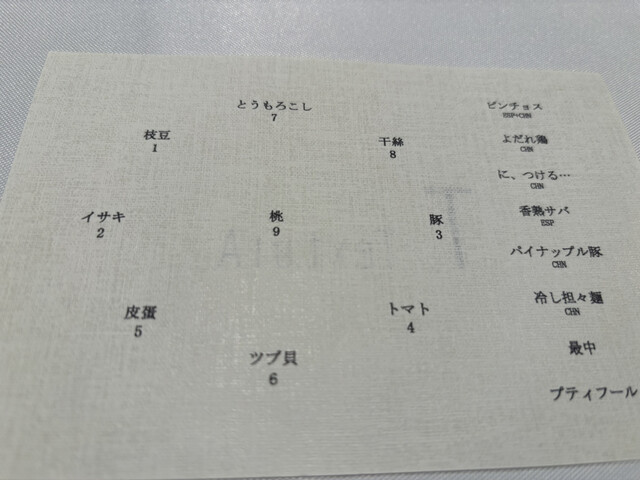 とうもろこし
7
枝豆
1
干絲
8
イサキ
2
桃
9
豚
3
皮蛋
5
トマト
4
ツブ貝
6
ピンチョス
ESP×CHN
よだれ鶏
CHN
に、つける…
CHN
香熟サバ
ESP
パイナップル豚
CHN
冷し担々麺
CHN
最中
プティフール